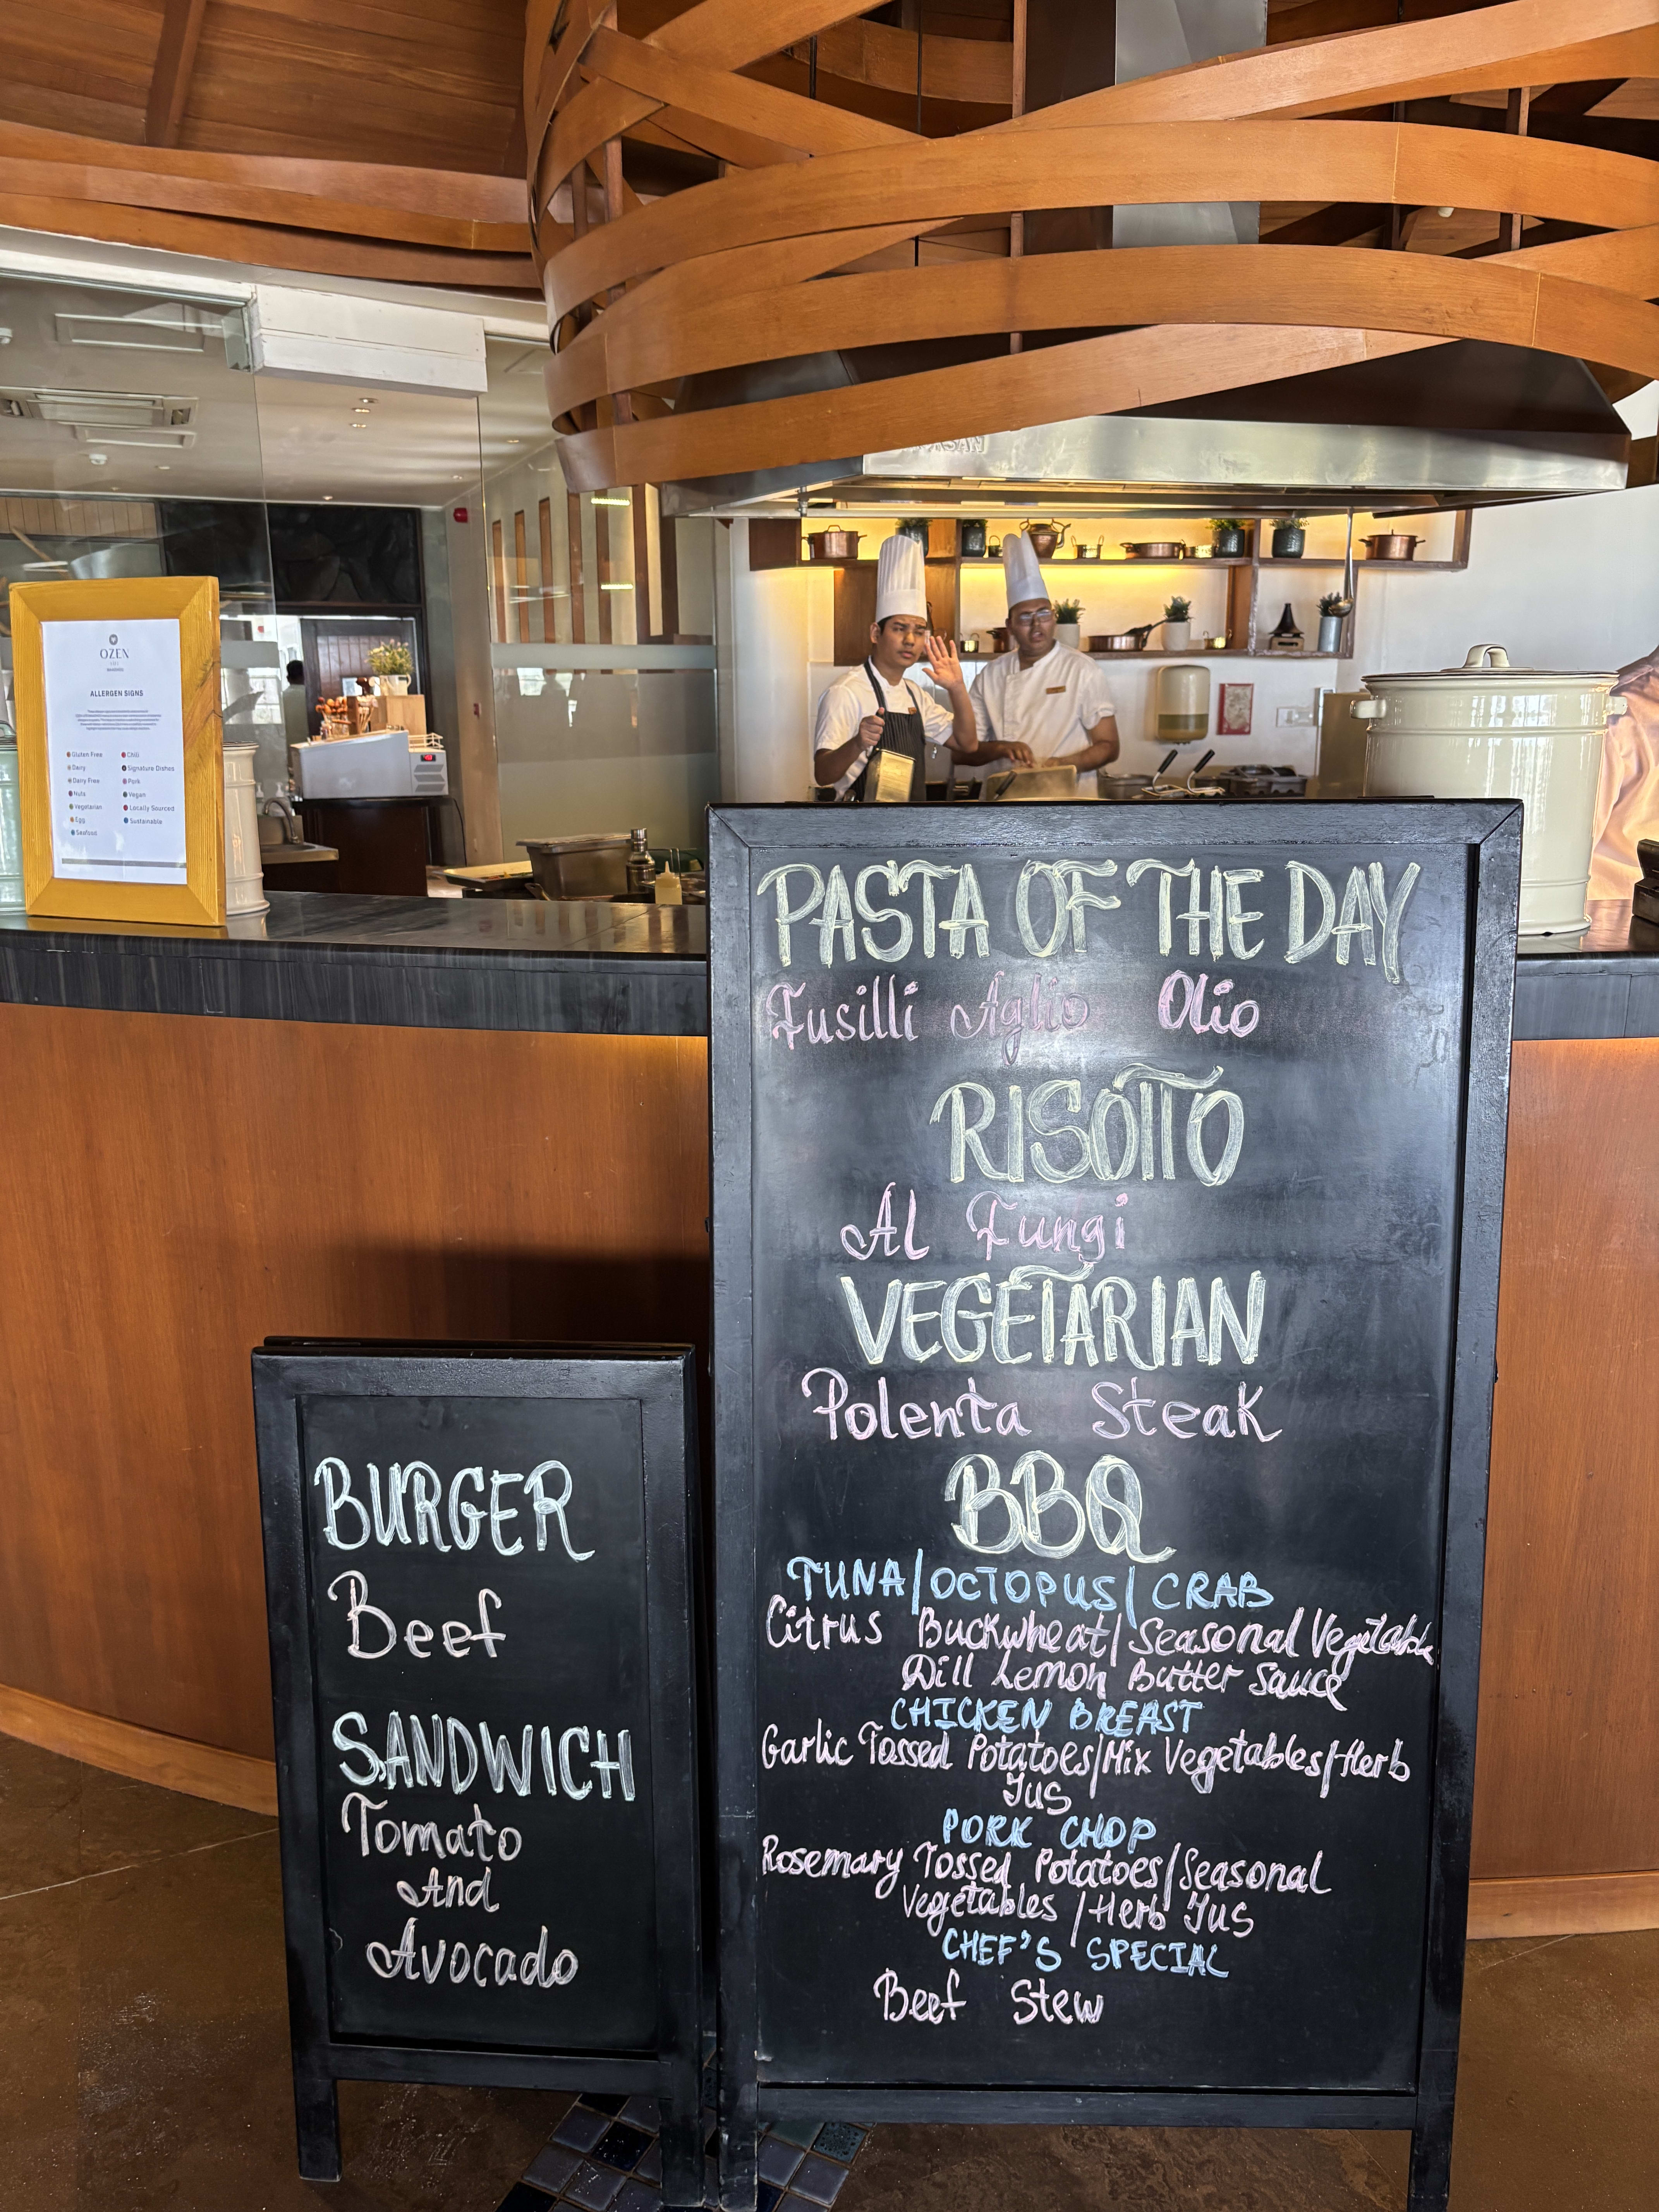 OZEN
ALLERGEN SIGNS
Gluten Free
Dairy
Dairy Free
Nuts
Vegetarian
Egg
Seafood
Chili
Signature Dishes
Pork
Vegan
Locally Sourced
Sustainable
PASTA OF THE DAY
Fusilli Aglio Olio
RISOTTO
Al Fungi
VEGETARIAN
Polenta Steak
BBQ
TUNA/OCTOPUS/CRAB
Citrus Buckwheat/Seasonal Vegetable
Dill Lemon Butter Sauce
CHICKEN BREAST
Garlic Tossed Potatoes/Mix Vegetables/Herb
Jus
PORK CHOP
Rosemary Tossed Potatoes/Seasonal
Vegetables /Herb Jus
CHEF'S SPECIAL
Beef Stew
BURGER
Beef
SANDWICH
Tomato
And
Avocado